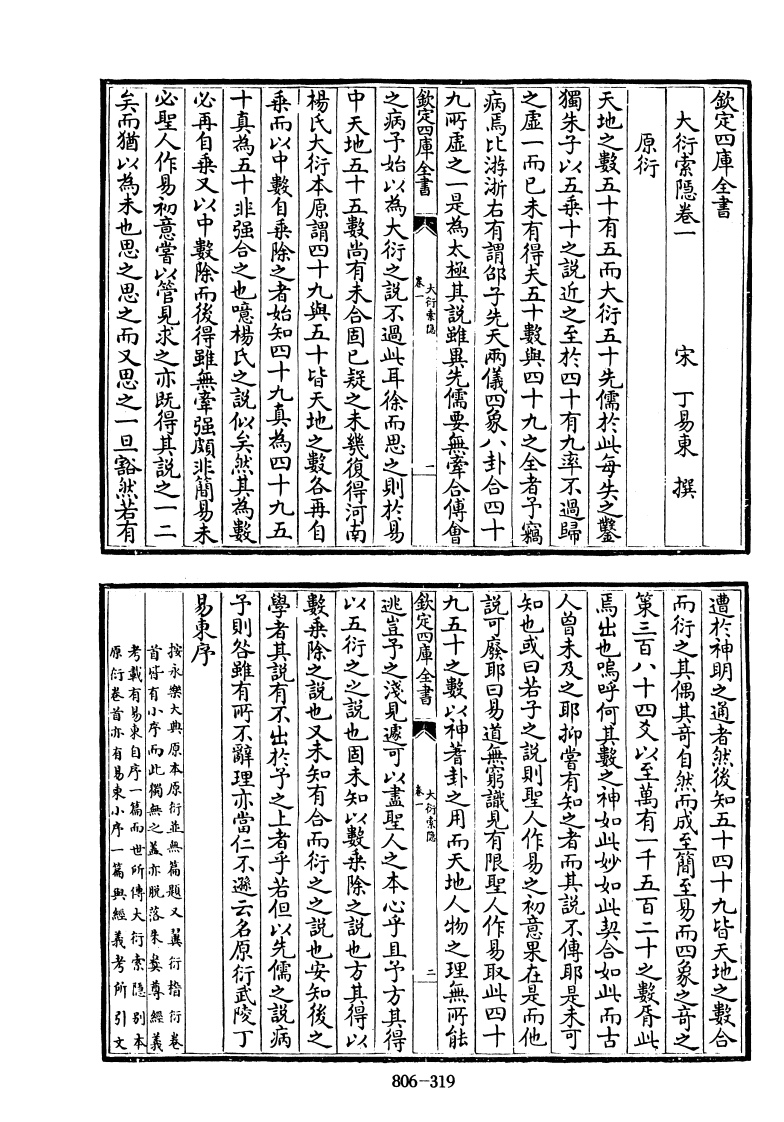 欽定四庫全書
大衍索隱卷一
宋 丁易東 撰
原衍
天地之數五十有五而大衍五十先儒於此每失之鑿
獨朱子以五乘十之說近之至於四十有九率不過歸
之虛一而已未有得夫五十數與四十九之全者予竊
病焉比游浙右有謂邵子先天兩儀四象八卦合四十
九所虛之一是為太極其說雖異先儒要無牽合傅會
欽定四庫全書
大衍索隱
卷一
一
之病予始以為大衍之說不過此耳徐而思之則於易
中天地五十五數尚有未合固已疑之未幾復得河南
楊氏大衍本原謂四十九與五十皆天地之數各再自
乘而以中數自乘除之者始知四十九真為四十九五
十真為五十非强合之也噫楊氏之說似矣然其為數
必再自乘又以中數除而後得雖無牽强頗非簡易未
必聖人作易初意嘗以管見求之亦既得其說之一二
矣而猶以為未也思之思之而又思之一旦豁然若有
遭於神明之通者然後知五十四十九皆天地之數合
而衍之其偶其竒自然而成至簡至易而四象之竒之
策三百八十四爻以至萬有一千五百二十之數胥此
焉出也嗚呼何其數之神如此妙如此契合如此而古
人曾未及之耶抑嘗有知之者而其說不傳耶是未可
知也或曰若子之說則聖人作易之初意果在是而他
說可廢耶曰易道無窮識見有限聖人作易取此四十
九五十之數以神蓍卦之用而天地人物之理無所能
欽定四庫全書
大衍索隱
卷一
二
逃豈予之淺見遽可以盡聖人之本心乎且予方其得
以五衍之之說也固未知以數乘除之說也方其得以
數乘除之說也又未知有合而衍之之說也安知後之
學者其說有不出於予之上者乎若但以先儒之說病
予則咎雖有所不辭理亦當仁不遜云名原衍武陵丁
易東序
按永樂大典原本原衍並無篇題又翼衍稽衍卷
首皆有小序而此獨無之葢亦脫落朱彛尊經義
考載有易東自序一篇而世所傳大衍索隱别本
原衍卷首亦有易東小序一篇與經義考所引文
806-319